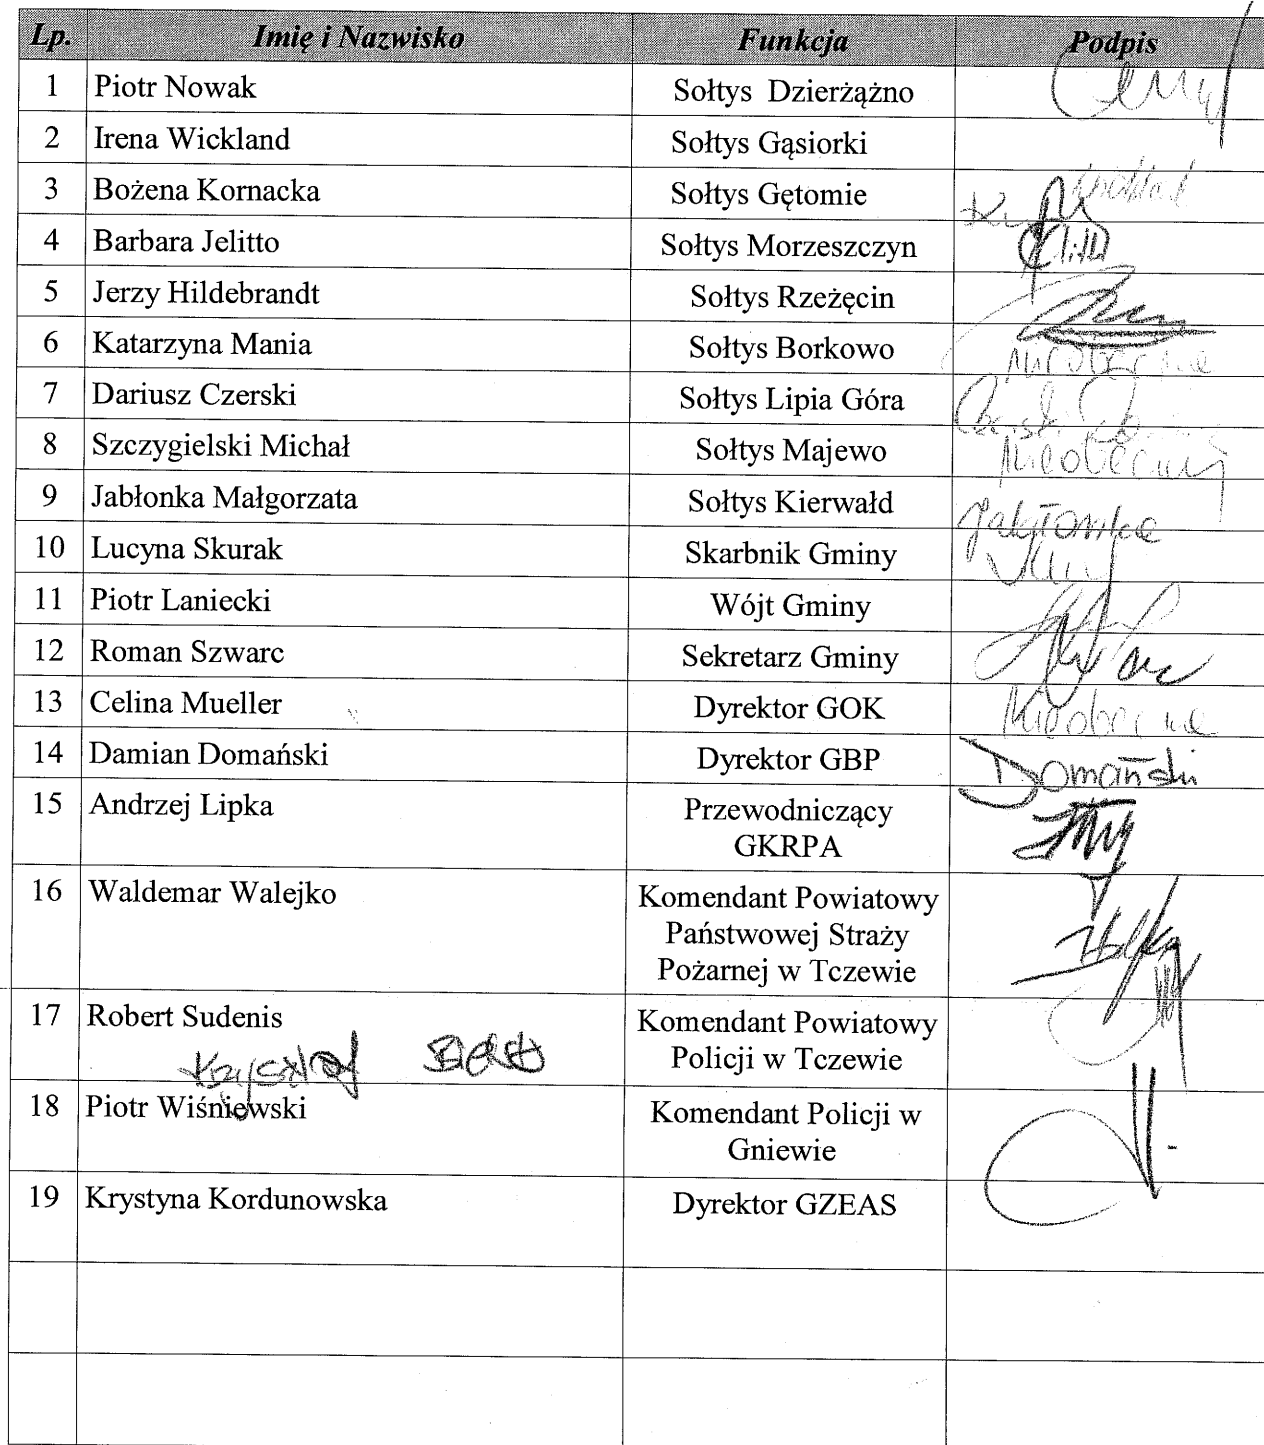 Lp. Imię i Nazwisko Funkcja Podpis
1 Piotr Nowak Sołtys Dzierżążno
2 Irena Wickland Sołtys Gąsiorki
3 Bożena Kornacka Sołtys Gętomie
4 Barbara Jelitto Sołtys Morzeszczyn
5 Jerzy Hildebrandt Sołtys Rzeżęcin
6 Katarzyna Mania Sołtys Borkowo Nieobecna
7 Dariusz Czerski Sołtys Lipia Góra Czerski
8 Szczygielski Michał Sołtys Majewo Nieobecny
9 Jabłonka Małgorzata Sołtys Kierwałd Jabłonka
10 Lucyna Skurak Skarbnik Gminy
11 Piotr Laniecki Wójt Gminy
12 Roman Szwarc Sekretarz Gminy
13 Celina Mueller Dyrektor GOK Nieobecna
14 Damian Domański Dyrektor GBP Domański
15 Andrzej Lipka Przewodniczący
GKRPA
16 Waldemar Walejko Komendant Powiatowy
Państwowej Straży
Pożarnej w Tczewie
17 Robert Sudenis Komendant Powiatowy
Krzysztof Policji w Tczewie
18 Piotr Wiśniewski Komendant Policji w
Gniewie
19 Krystyna Kordunowska Dyrektor GZEAS